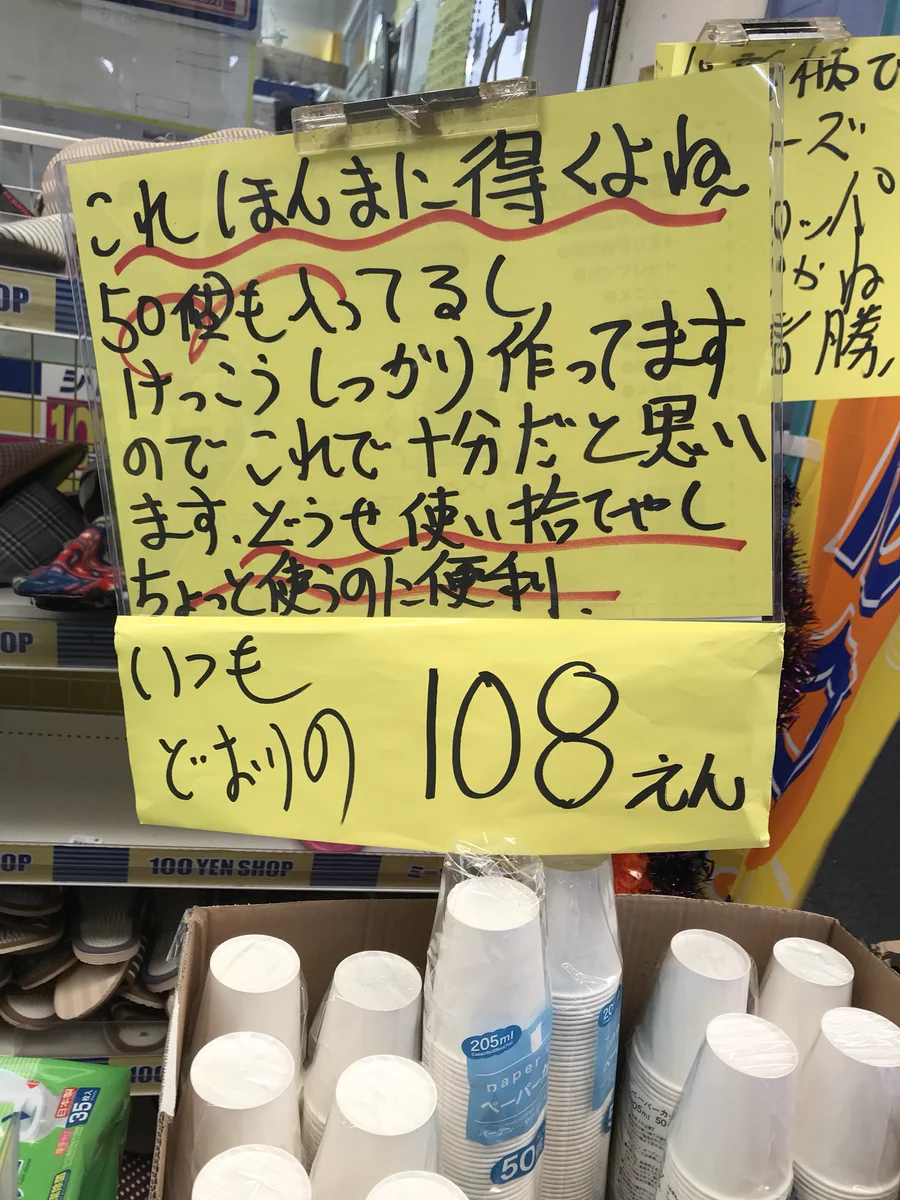 これ ほんまに得くよね〜
50個も入ってるし、
けっこう しっかり作ってます
ので これで十分だと思い
ます、どうせ使い捨てやし
ちょっと使うのに便利、
いつも
どおりの 108えん
柄
ーズ
ッパ
ね
勝
OP
OP
OP
100 YEN SHOP
ミー
100
205ml
paper
ペーパー
50
日本製
35枚入